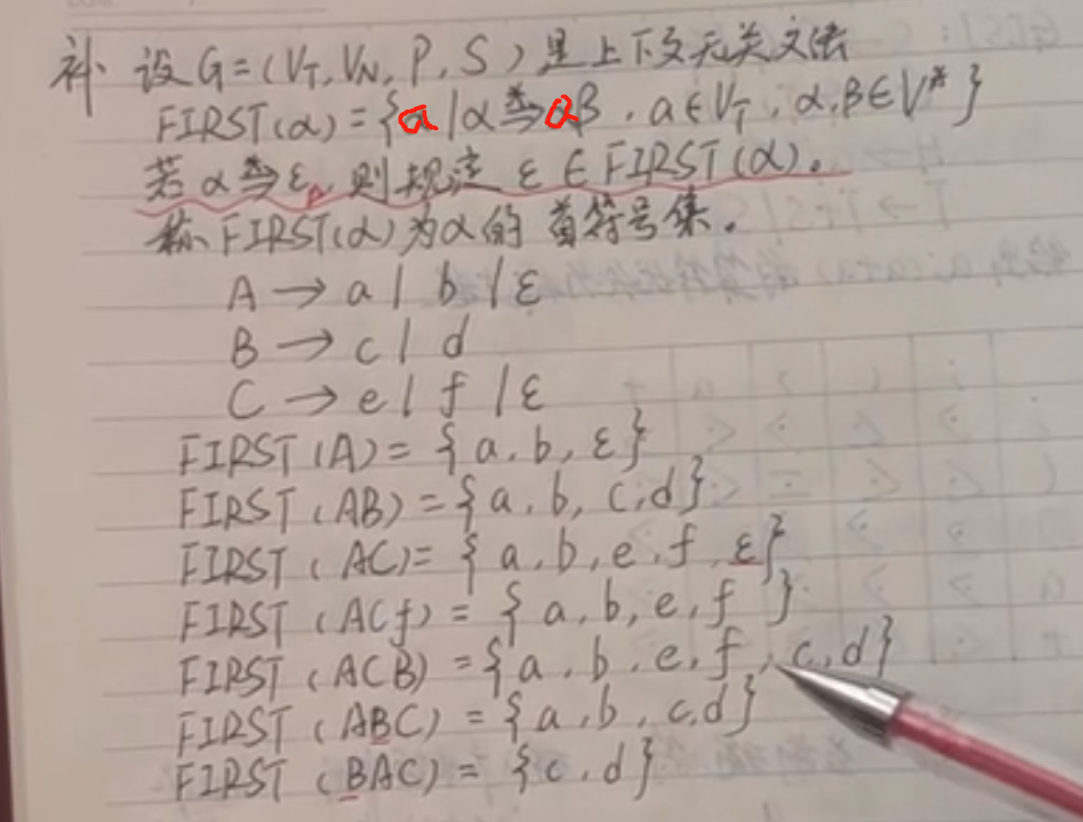 补. 设G=(V_T, V_N, P, S)是上下文无关文法
FIRST(α)={a|α*⇒aβ, a∈V_T, α,β∈V*}
若α*⇒ε, 则规定 ε∈FIRST(α)。
称FIRST(α)为α的首符号集。
A→a| b|ε
B→c| d
C→e| f |ε
FIRST(A)={a,b,ε}
FIRST(AB)={a,b,c,d}
FIRST(AC)={a,b,e,f,ε}
FIRST(ACf)={a,b,e,f}
FIRST(ACB)={a,b,e,f,c,d}
FIRST(ABC)={a,b,c,d}
FIRST(BAC)={c,d}